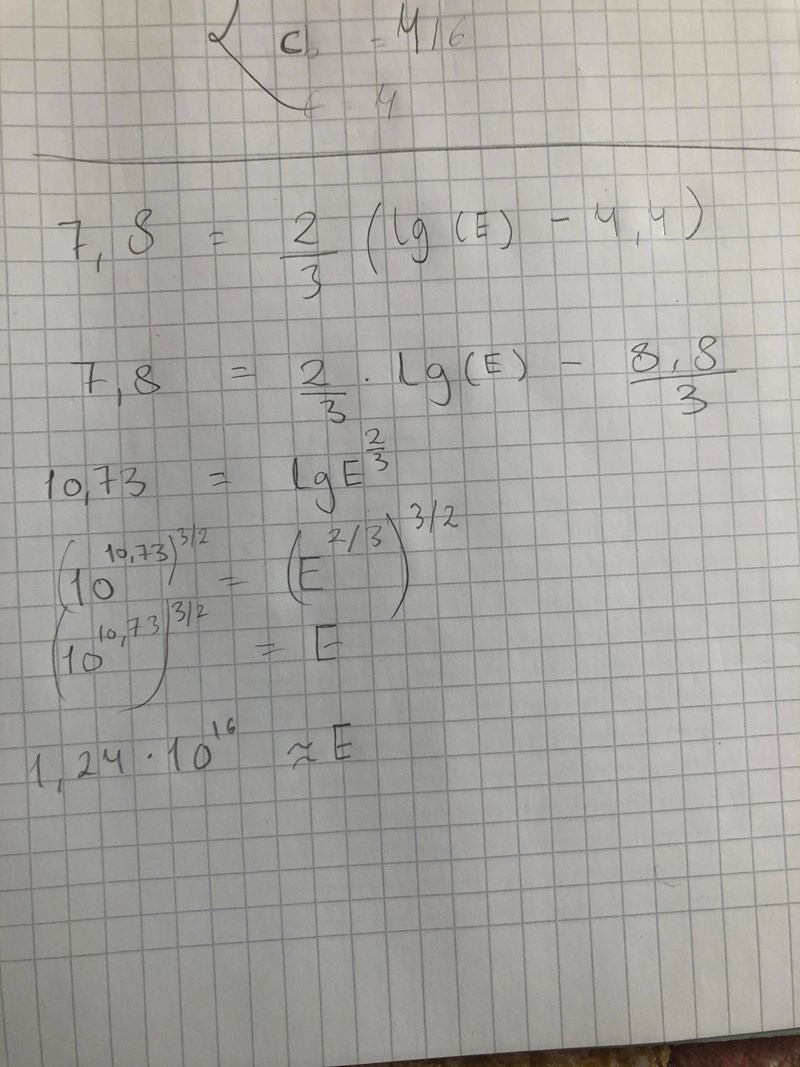 cb = 4/6
= 4
7,8 = 2/3 (lg (E) - 4,4)
7,8 = 2/3 · lg(E) - 8,8/3
10,73 = lg E^2/3
(10^10,73)^3/2 = (E^2/3)^3/2
(10^10,73)^3/2 = E
1,24 · 10^16 ≈ E